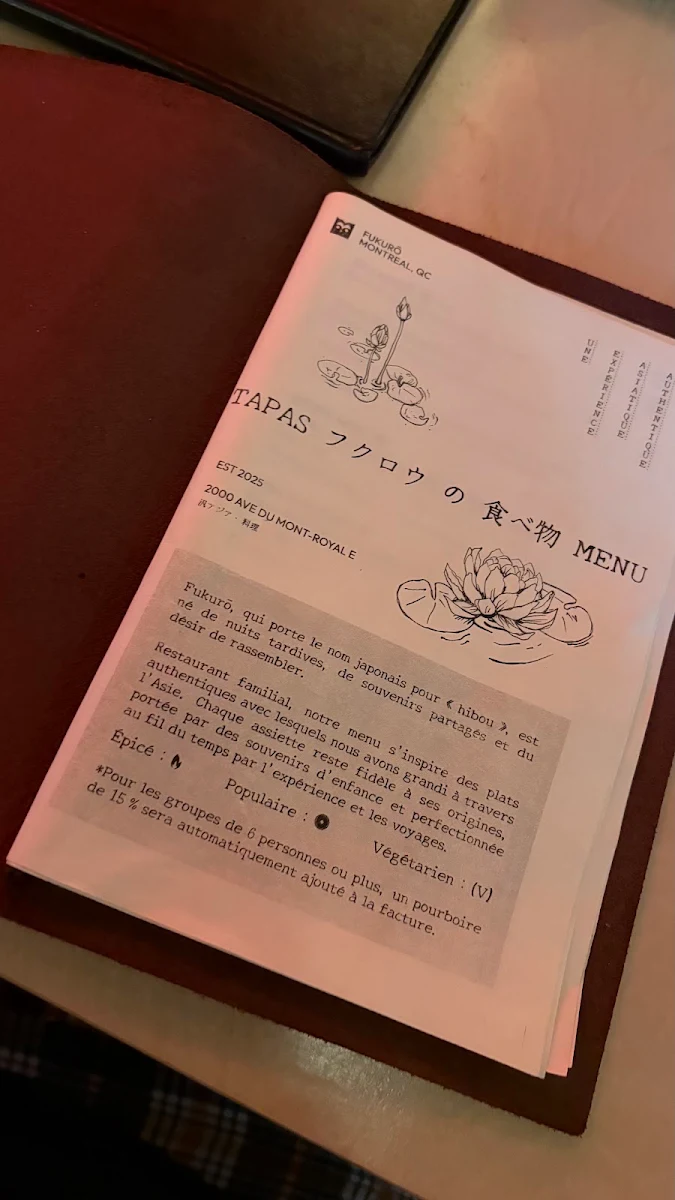 FUKURŌ
MONTREAL, QC
UNE
EXPÉRIENCE
ASIATIQUE
AUTHENTIQUE
TAPAS フクロウ の 食べ物 MENU
EST 2025
2000 AVE DU MONT-ROYAL E
汎アジア 料理
Fukurō, qui porte le nom japonais pour « hibou », est
né de nuits tardives, de souvenirs partagés et du
désir de rassembler.
Restaurant familial, notre menu s'inspire des plats
authentiques avec lesquels nous avons grandi à travers
l'Asie. Chaque assiette reste fidèle à ses origines,
portée par des souvenirs d'enfance et perfectionnée
au fil du temps par l'expérience et les voyages.
Épicé : Populaire : Végétarien : (V)
*Pour les groupes de 6 personnes ou plus, un pourboire
de 15 % sera automatiquement ajouté à la facture.